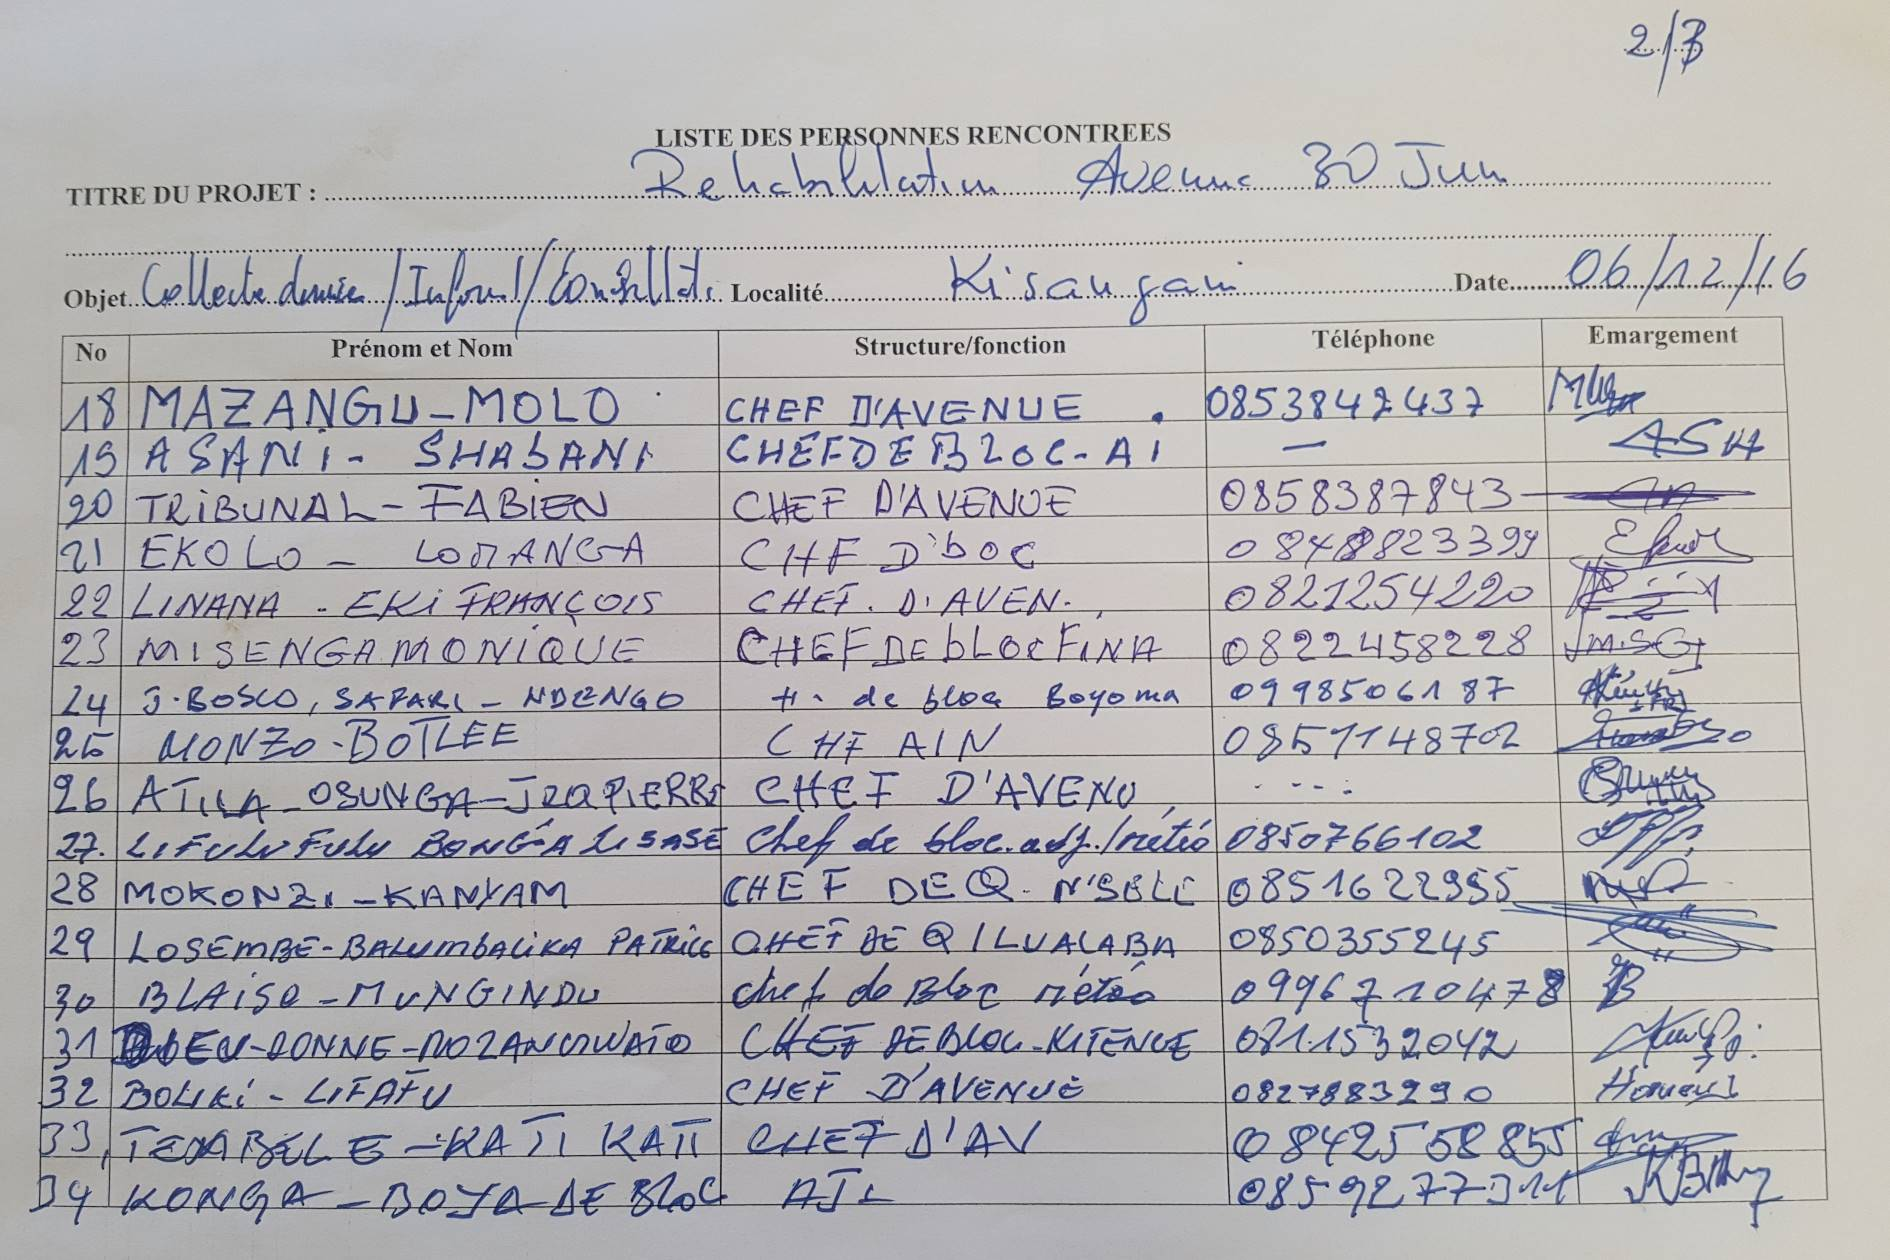 2/3
LISTE DES PERSONNES RENCONTREES
TITRE DU PROJET : Rehabilitation Avenue 30 Juin
Objet Collecte donnée / Inform / Consultat. Localité Kisangani Date 06/12/16
No Prénom et Nom Structure/fonction Téléphone Emargement
18 MAZANGU-MOLO CHEF D'AVENUE . 0853842437
19 ASANI - SHABANI CHEF DE BLOC-A1 — ASH
20 TRIBUNAL-FABIEN CHEF D'AVENUE 0858387843
21 EKOLO - LOMANGA CHF D'bOC 0848823399
22 LINANA - EKI FRANÇOIS CHEF. D'AVEN. 0821254220
23 MISENGA MONIQUE CHEF DE bLOC FINA 0822458228
24 J. BOSCO, SAFARI - NDENGO de bloc Boyoma 0998506187
25 MONZO-BOTLEE CHF AIN 0851148702
26 ATILA-OSUNGA- CHEF D'AVENU
27. LIFULUFULU BONGA LISASE Chef de bloc.adj./météo 0850766102
28 MOKONZI-KANYAM CHEF DE Q. N'SELE 0851622955
29 LOSEMBE-BALUMBALIKA PATRICE CHEF DE Q/LUALABA 0850355245
30 BLAISE-MUNGINDU chef de Bloc météo 0996710478 B
31 DIEU-DONNE- CHEF DE BLOC-KITENGE 0811532042
32 BOLIKI - LIFAFU CHEF D'AVENUE 0827883290
33, -KATI KATI CHEF D'AV 0842558855
34 KONGA-BOYA-DE BLOC 0859277311